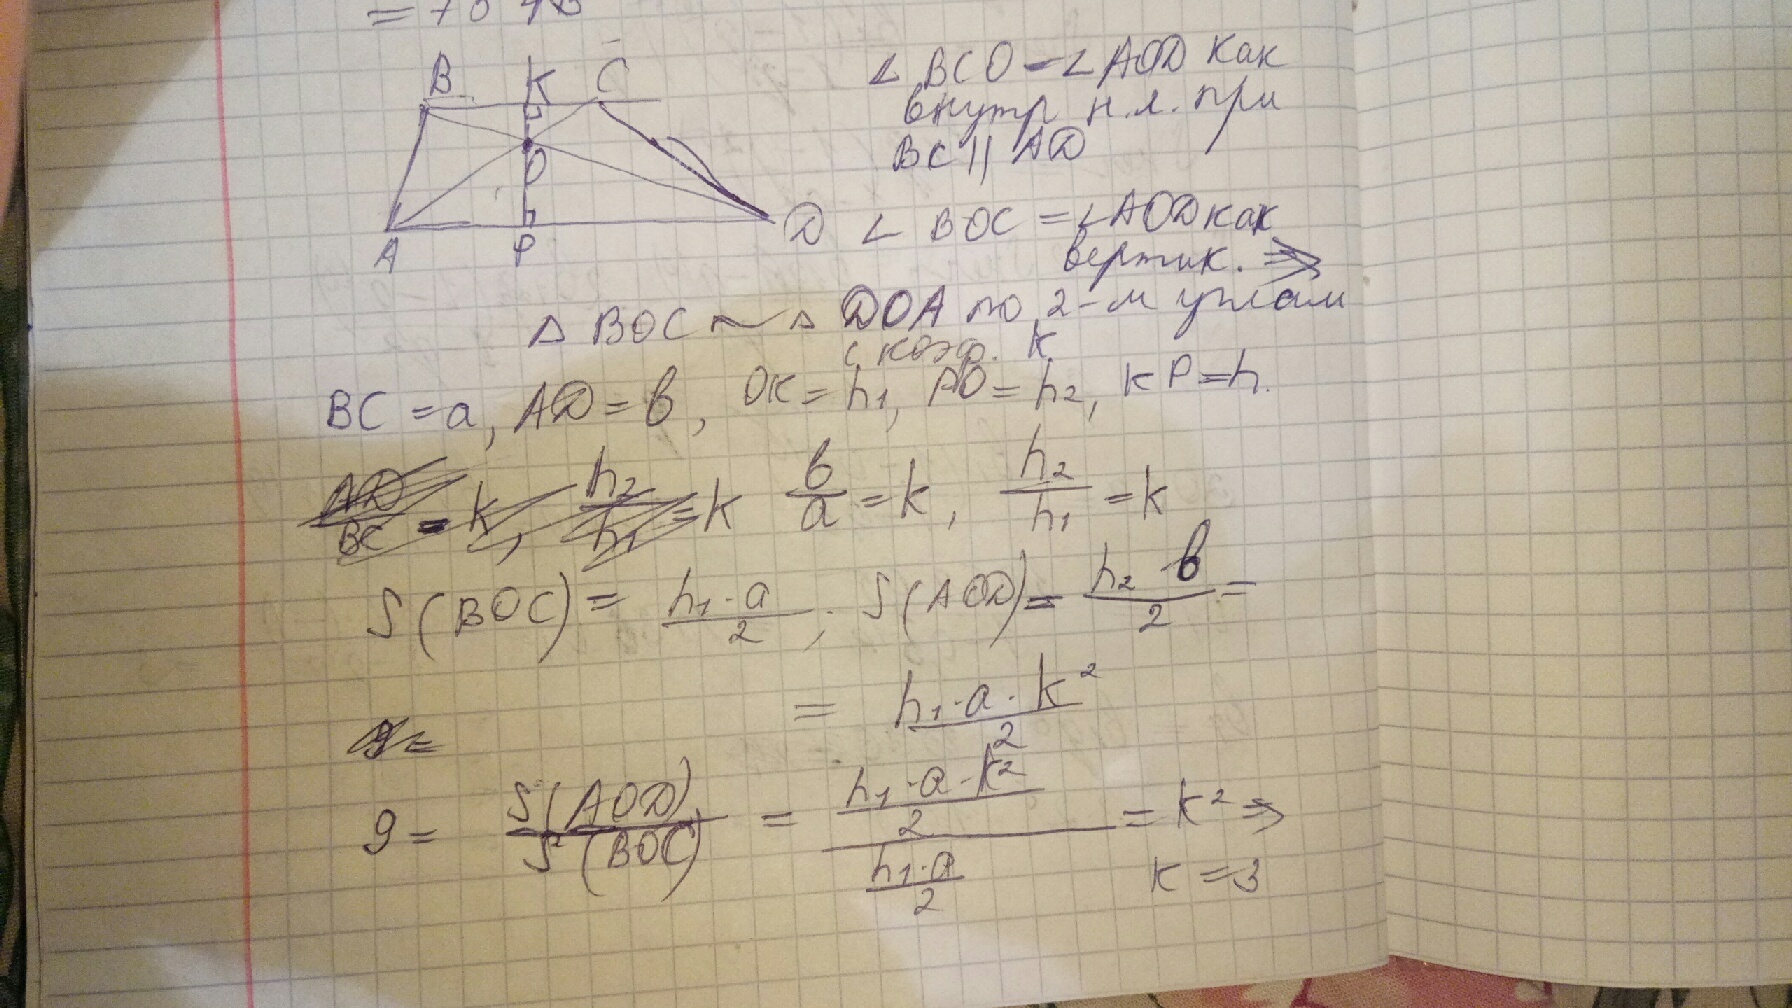 B K C
O
A P D
∠ BCO = ∠ AOD как
внутр н.л. при
BC || AD
∠ BOC = ∠ AOD как
вертик. ⇒
△ BOC ~ △ DOA по 2-м углам
с коэф. k
BC = a, AD = b, OK = h₁, PO = h₂, KP = h.
AD/BC = k, h₂/h₁ = k b/a = k, h₂/h₁ = k
S(BOC) = h₁·a/2; S(AOD) = h₂ b/2 =
= h₁·a·k²/2
9 =
9 = S(AOD)/S(BOC) = (h₁·a·k²/2)/(h₁·a/2) = k² ⇒
k = 3